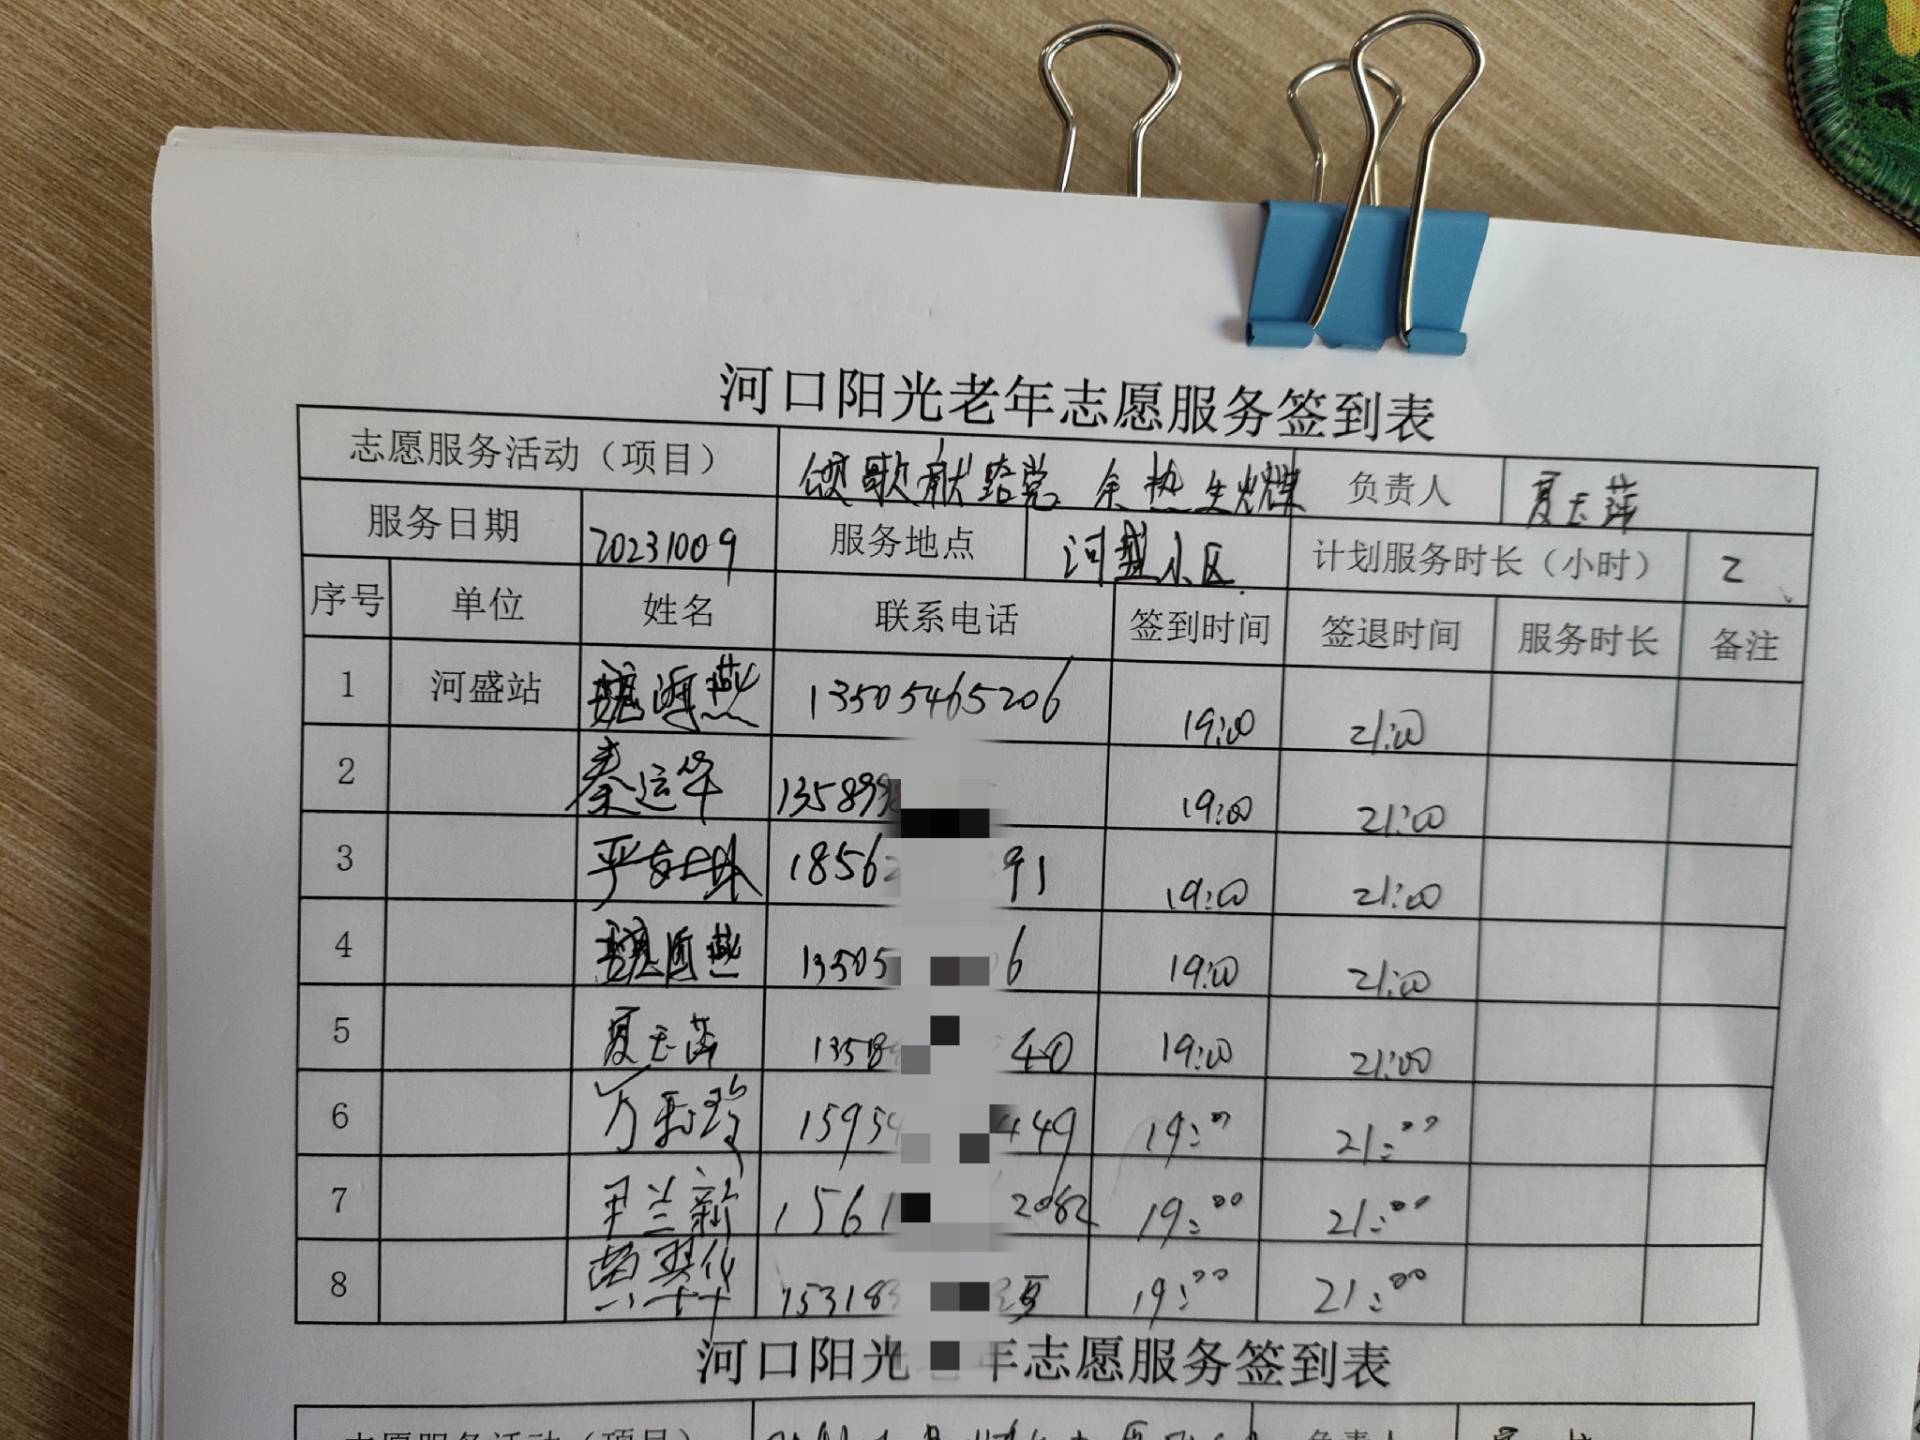 河口阳光老年志愿服务签到表
志愿服务活动（项目） 颂歌献给党 余热生辉 负责人 夏玉萍
服务日期 20231009 服务地点 河盛小区 计划服务时长（小时） 2
序号 单位 姓名 联系电话 签到时间 签退时间 服务时长 备注
1 河盛站 魏海燕 13505465206 19:00 21:00
2 秦运华 135899 19:00 21:00
3 18562 91 19:00 21:00
4 魏海燕 13505 6 19:00 21:00
5 夏玉萍 13589 40 19:00 21:00
6 万 15954 449 19:00 21:00
7 王兰新 1561 2082 19:00 21:00
8 黄翠华 153183 19:00 21:00
河口阳光 年志愿服务签到表
志愿服务活动（项目） 负责人